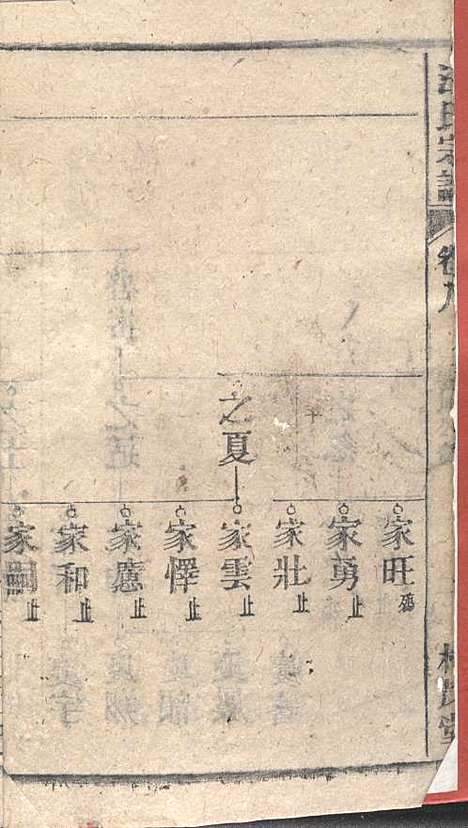 氏宗譜
卷九
之夏
家旺殤
家勇止
家壯止
家雲止
家懌止
家應止
家和止
家嗣止